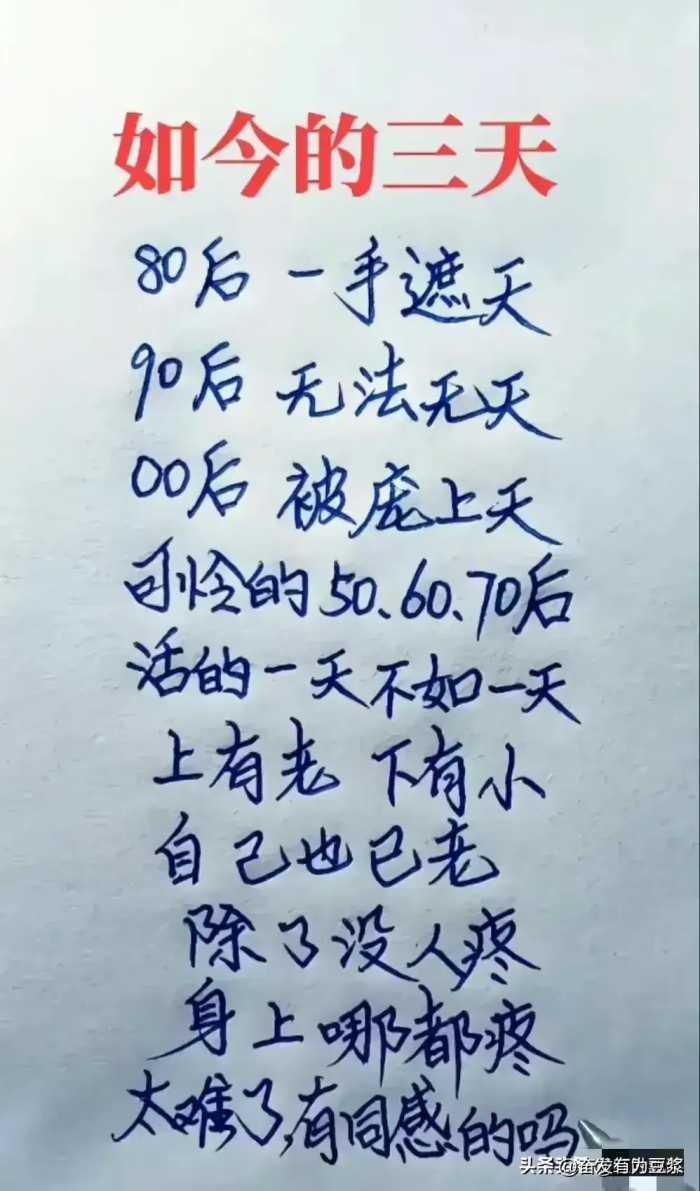 如今的三天
80后 一手遮天
90后 无法无天
00后 被宠上天
可怜的50、60、70后
活的一天不如一天
上有老 下有小
自己也已老
除了没人疼
身上哪都疼
太难了,有同感的吗
头条 @奋发有为豆浆